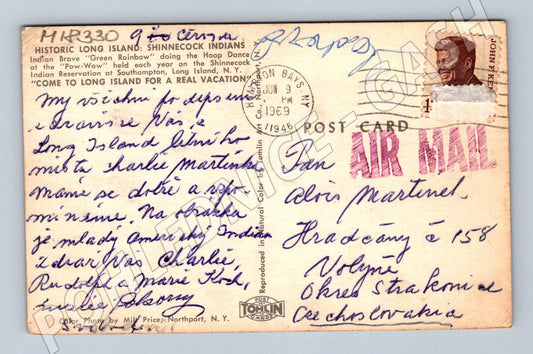 MKP330
9ého června
HISTORIC LONG ISLAND: SHINNECOCK INDIANS
Indian Brave "Green Rainbow" doing the Hoop Dance
at the "Pow-Wow" held each year on the Shinnecock
Indian Reservation at Southampton, Long Island, N. Y.
"COME TO LONG ISLAND FOR A REAL VACATION"
My všichni
zdravíme Vás z
Long Island letního
místa Charlie Martínka
Máme se dobře a vpo
mínáme. Na obrázku
je mladý Americký Indian
Zdraví Vás Charlie
Rudolf a Marie Koch,
D Color Photo by Milt Price, Northport, N. Y.
Reproduced in Natural Color by Tomlin Art Co., Northport, N.Y.
POST
TOMLIN
CARDS
HAMPTON BAYS, NY
JUN 9
PM
1969
11946
JOHN F. KEN
1
POST CARD
AIR MAIL
Pan
Alois Martinek
Hradčány č 158
Volyně
Okres Strakonice
Czechoslovakia